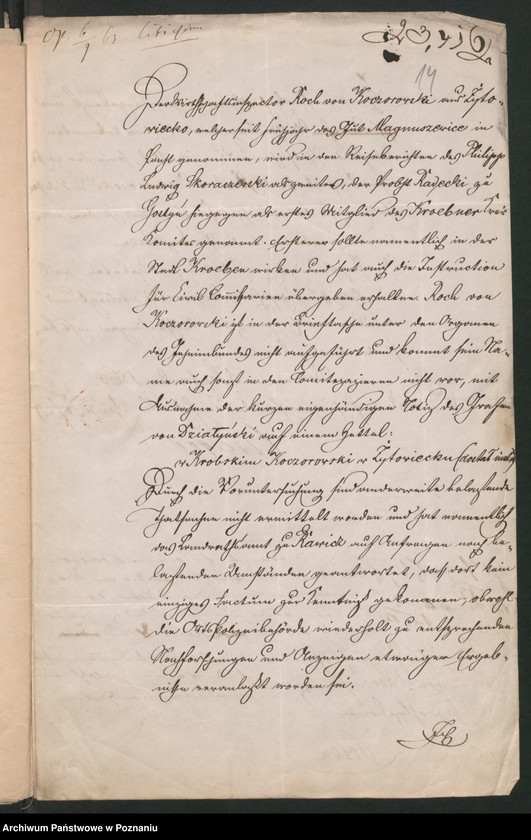 14
Der Wirthschaftsinspector Roch von Koczorowski aus Zyto-
wiecko, welcher seit Frühjahr das Gut Magnuszewice in
Pacht genommen, wird in den Reiseberichten des Philipp
Ludwig Skoraczewski als zweites, der Probst Radecki zu
Gostyń hingegen als erstes Mitglied des Kroebner Kreis
Comites genannt. Ersterer sollte namentlich in der
Stadt Kroeben wirken und hat auch die Instruction
für Civil Commissarien übergeben erhalten. Roch von
Koczorowski ist in der Brieftasche unter den Organen
des Geheimbundes nicht aufgeführt und kommt sein Na-
me auch sonst in den Comitepapieren nicht vor, mit
Ausnahme der kurzen eigenhändigen Notiz des Grafen
von Działyński auf einem Zettel:
w Krobskim Koczorowski w Zytowiecku
Durch die Voruntersuchung sind anderweite belastende
Thatsachen nicht ermittelt worden und hat namentlich
das Landrathsamt zu Rawicz auf Anfragen nach be-
lastenden Umständen geantwortet, daß dort kein
einziges Factum zur Kenntniß gekommen, obwohl
die Ortspolizeibehörde wiederholt zu entsprechenden
Nachforschungen und Anzeigen etwaiger Ergeb-
nisse veranlaßt worden sei.
Archiwum Państwowe w Poznaniu